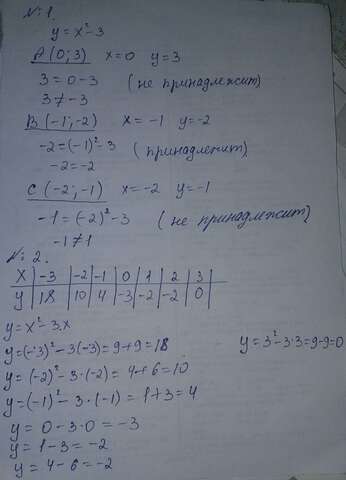 N: 1.
y = x² - 3.
A (0; 3) x = 0 y = 3
3 = 0 - 3 (не принадлежит)
3 ≠ -3
B (-1; -2) x = -1 y = -2
-2 = (-1)² - 3 (принадлежит)
-2 = -2
C (-2; -1) x = -2 y = -1
-1 = (-2)² - 3 (не принадлежит)
-1 ≠ 1
N: 2.
x | -3 | -2 | -1 | 0 | 1 | 2 | 3
y | 18 | 10 | 4 | -3 | -2 | -2 | 0
y = x² - 3x
y = (-3)² - 3(-3) = 9 + 9 = 18 y = 3² - 3·3 = 9 - 9 = 0
y = (-2)² - 3·(-2) = 4 + 6 = 10
y = (-1)² - 3·(-1) = 1 + 3 = 4
y = 0 - 3·0 = -3
y = 1 - 3 = -2
y = 4 - 6 = -2